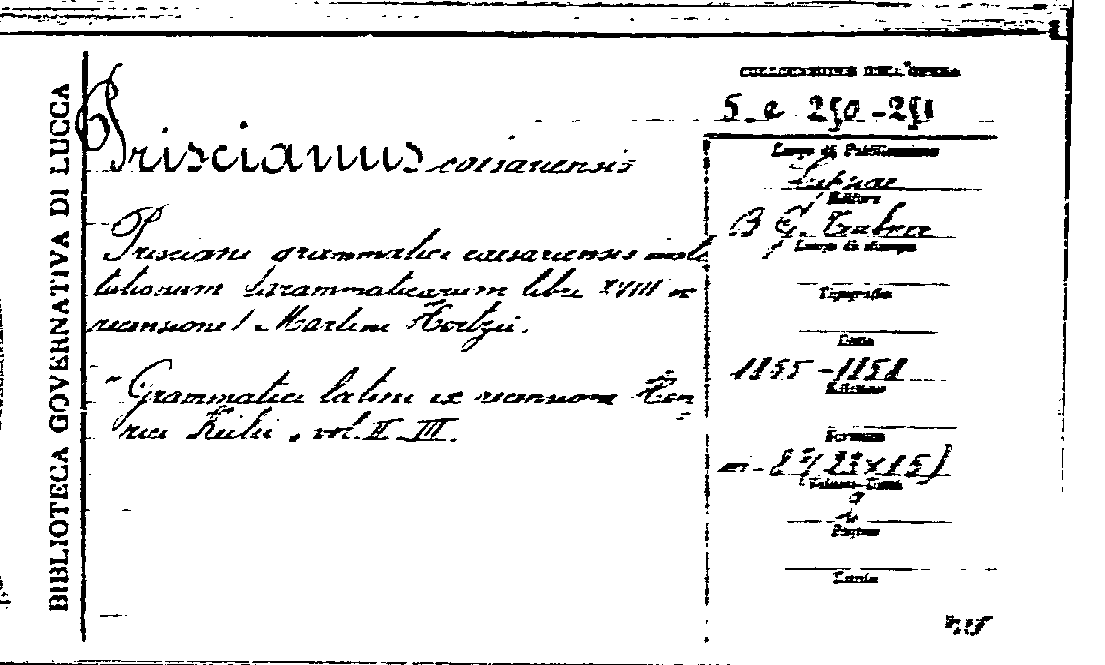 BIBLIOTECA GOVERNATIVA DI LUCCA
Priscianus caesariensis
Prisciani grammatici caesariensis insti
tutionum Grammaticarum libri XVIII ex
recensione Martini Hertzii.
"Grammatici latini ex recensione Hen
rici Keilii, vol. II-III.
COLLOCAZIONE DELL'OPERA
5. e 250-251
Luogo di Pubblicazione
Lipsiae
Editore
B G. Teubner
Luogo di stampa
Tipografia
Data
1855-1858
Edizione
Formato
in-8° (23x15)
Volume-Tomo
2
Pagine